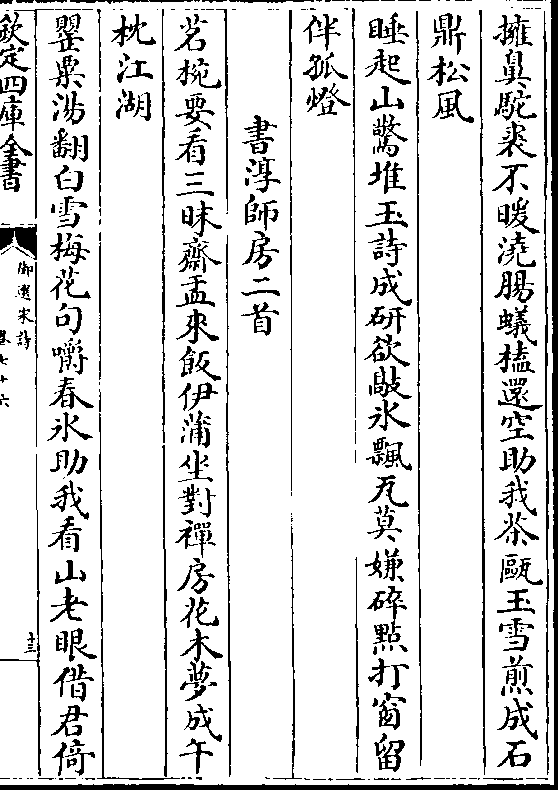 擁鼻駝裘不暖澆腸蟻榼還空助我茶甌玉雪煎成石
鼎松風
睡起山驚堆玉詩成研欲敲氷飄瓦莫嫌碎點打窗留
伴孤燈
書淳師房二首
茗椀要看三昧齋盂來飯伊蒲坐對禪房花木夢成午
枕江湖
罌粟湯翻白雪梅花句嚼春氷助我看山老眼借君倚
欽定四庫全書
御選宋詩
卷七十六
十三